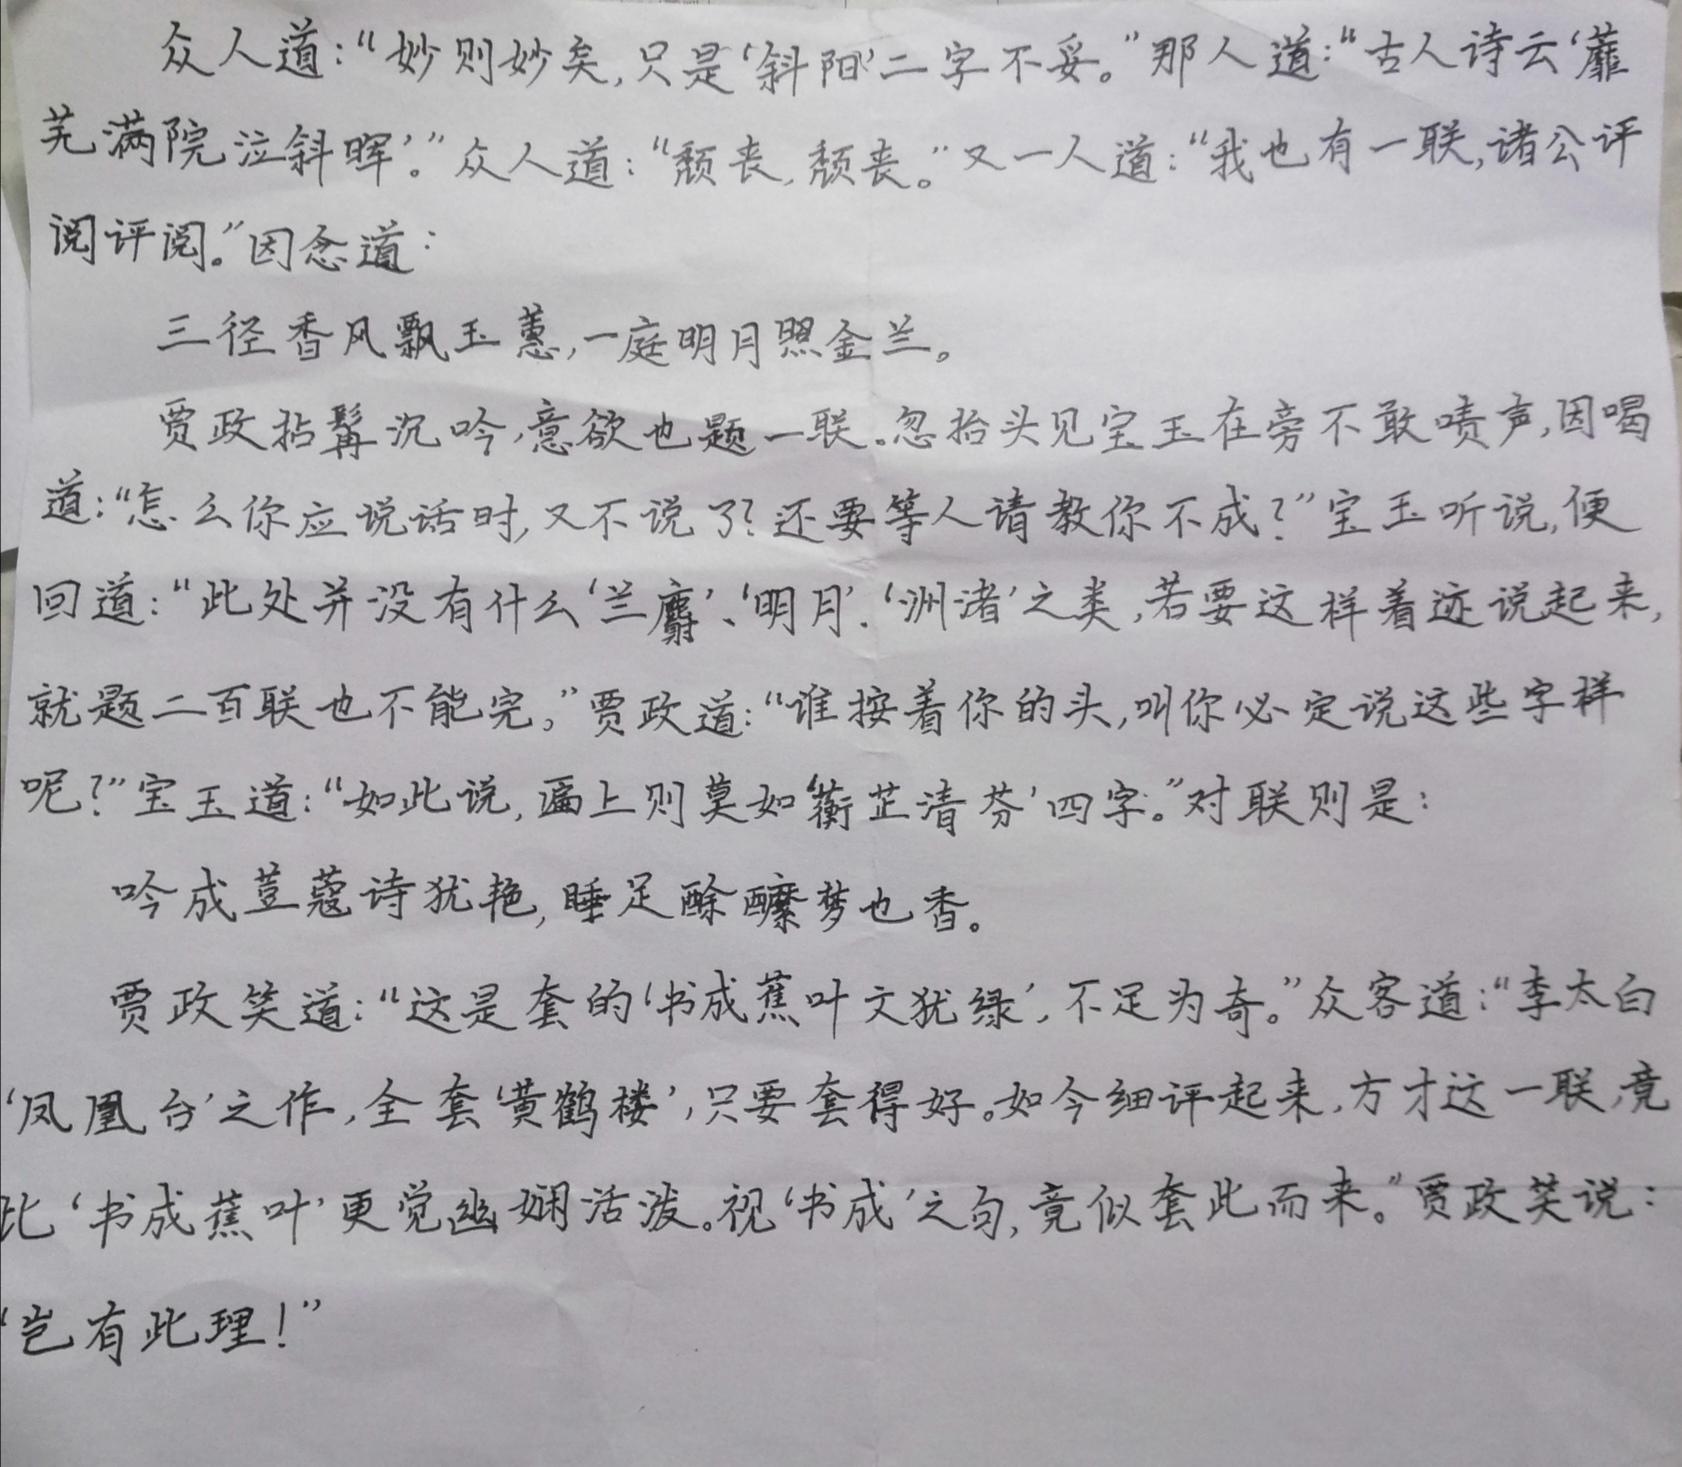 众人道：“妙则妙矣，只是‘斜阳’二字不妥。”那人道：“古人诗云‘蘼
芜满院泣斜晖’。”众人道：“颓丧，颓丧。”又一人道：“我也有一联，诸公评
阅评阅。”因念道：
三径香风飘玉蕙，一庭明月照金兰。
贾政拈髯沉吟，意欲也题一联。忽抬头见宝玉在旁不敢啧声，因喝
道：“怎么你应说话时，又不说了？还要等人请教你不成？”宝玉听说，便
回道：“此处并没有什么‘兰麝’、‘明月’、‘洲渚’之类，若要这样着迹说起来，
就题二百联也不能完。”贾政道：“谁按着你的头，叫你必定说这些字样
呢？”宝玉道：“如此说，匾上则莫如‘蘅芷清芬’四字。”对联则是：
吟成荳蔻诗犹艳，睡足酴醾梦也香。
贾政笑道：“这是套的‘书成蕉叶文犹绿’，不足为奇。”众客道：“李太白
‘凤凰台’之作，全套‘黄鹤楼’，只要套得好。如今细评起来，方才这一联，竟
比‘书成蕉叶’更觉幽娴活泼。视‘书成’之句，竟似套此而来。”贾政笑说：
“岂有此理！”